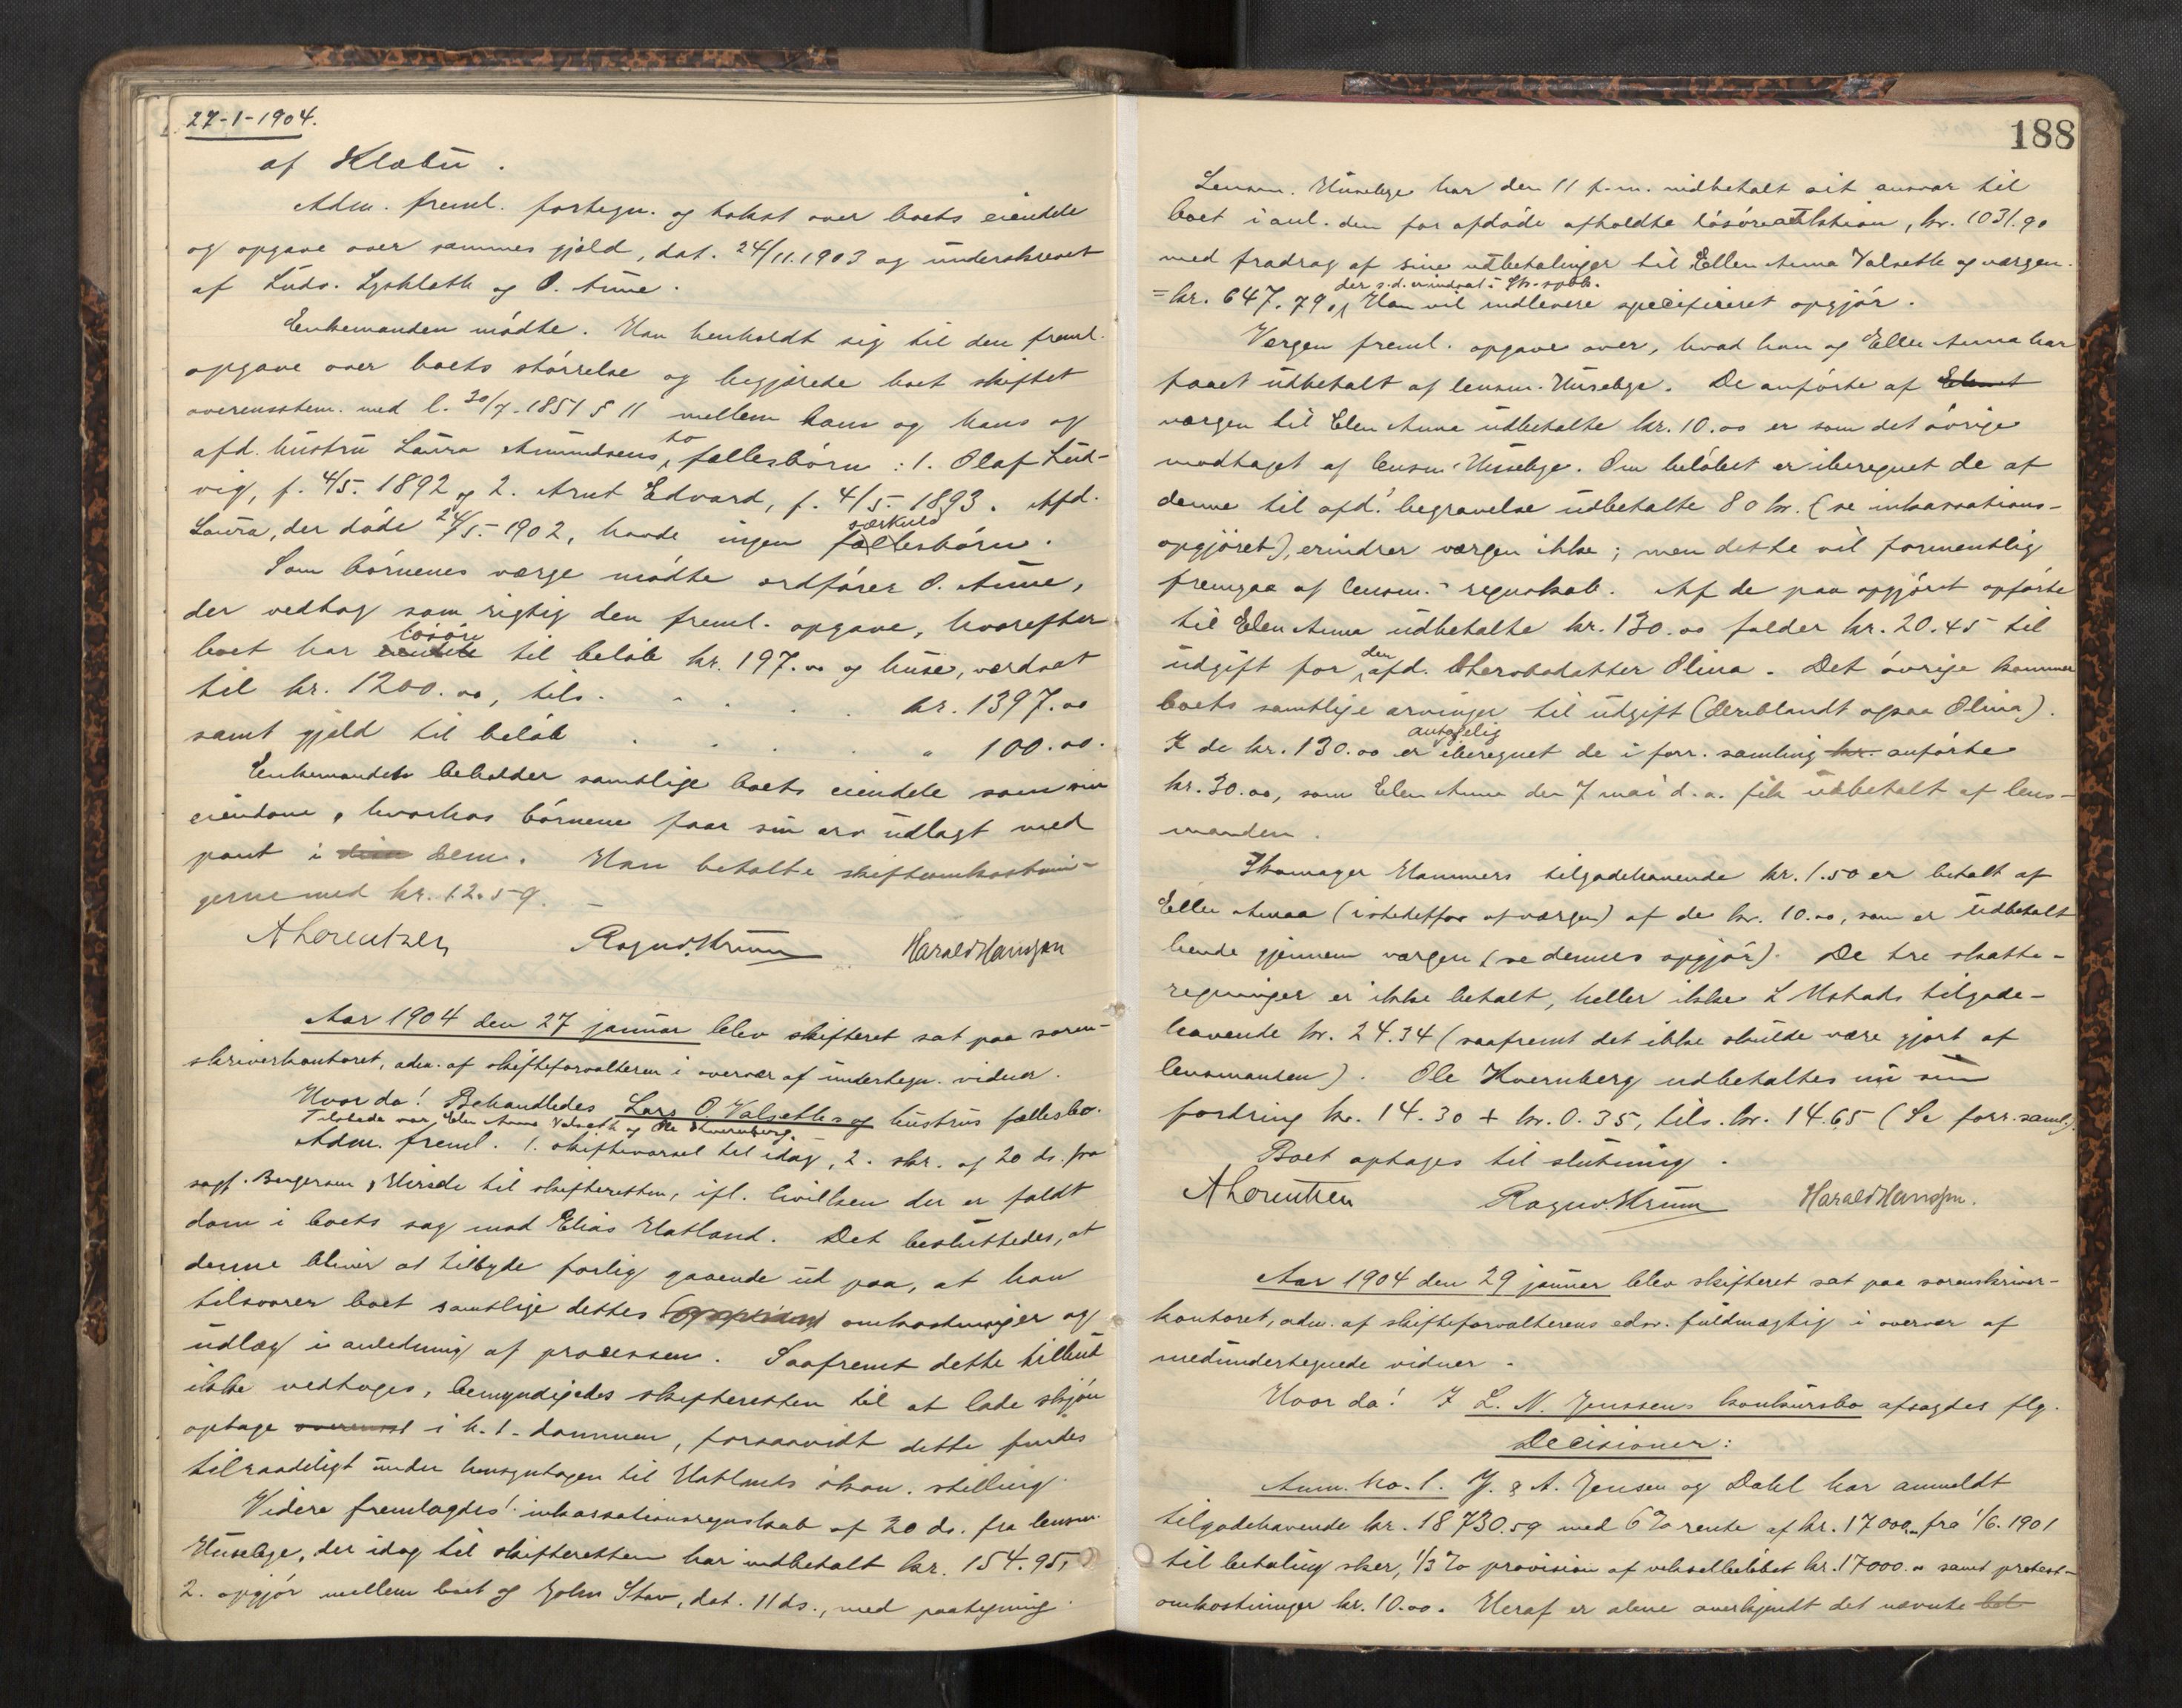 27-1-1904.
af Klæbu.
Adm. freml. fortegn. og takst over boets eiendele
og opgave over sammes gjæld, dat. 24/11.1903 og underskrevet
af Ludv. Lysklæth og O. Aune.
Enkemanden mødte. Han henholdt sig til den freml.
opgave over boets størrelse og begjærede boet skiftet
overensstem. med l. 30/7-1851 § 11 mellem ham og hans og
afd. hustru Laura Amundsens to fællesbørn: 1. Olaf Lud-
vig, f. 4/5. 1892 og 2. Arnt Edvard, f. 4/5. 1893. Afd.
Laura, der døde 24/5-1902, havde ingen særkuldbørn.
Som børnenes værge mødte ordfører O. Aune,
der vedtog som rigtig den freml. opgave, hvorefter
boet har løsøre til beløb kr. 197.00 og huse, værdsat
til kr. 1200.00, tils. . . . . kr. 1397.00
samt gjæld til beløb . . . . " 100.00.
Enkemanden beholder samtlige boets eiendele som sin
eiendom, hvorhos børnene faar sin arv udlagt med
pant i dem. Han betalte skifteomkostnin-
gerne med kr. 12.59. -
A Lorentzen Ragnv. Krum Harald Hansen
Aar 1904 den 27 januar blev skifteret sat paa soren-
skriverkontoret, adm. af skifteforvalteren i overvær af undertegn. vidner.
Hvor da! Behandledes Lars O. Valseths og hustrus fællesbo.
Tilstede var Elen Anna Valseth og Ole Kvernberg.
Adm. freml. 1. skiftevarsel til idag, 2. skr. af 20 ds. fra
sagf. Bergersen, Hirsde til skifteretten, ifl. hvilken der er faldt
dom i boets sag mod Elias Hatland. Det besluttedes, at
denne bliver at tilbyde forlig gaaende ud paa, at han
tilsvarer boet samtlige dettes omkostninger og
udlæg i anledning af processen. Saafremt dette tilbud
ikke vedtages, bemyndigedes skifteretten til at lade skjøn
optage overensst i h. t. dommen, forsaavidt dette findes
tilraadeligt under hensyntagen til Hatlands økon. stilling.
Videre fremlagdes 1. inkassationsregnskab af 20 ds. fra lensm.
Huseby, der idag til skifteretten har indbetalt kr. 154.95,
2. opgjør mellem boet og John Stav, dat. 11 ds., med paategning.
188
Lensm. Huseby har den 11 f.m. indbetalt sit ansvar til
boet i anl. den for afdøde afholdte løsøreauktion, kr. 1031.90
med fradrag af sine udbetalinger til Ellen Anna Valseth og værgen.
= kr. 647.79, der s.d. er indsat i Sk. spbk. Han vil indlevere specificeret opgjør.
Værgen freml. opgave over, hvad han og Ellen Anna har
faaet udbetalt af lensm. Huseby. De anførte af
værgen til Elen Anna udbetalte kr. 10.00 er som det øvrige
modtaget af lensm. Huseby. Om beløbet er iberegnet de af
denne til afd.' begravelse udbetalte 80 kr. (se inkassations-
opgjøret), erindrer værgen ikke; men dette vil formentlig
fremgaa af lensm.s regnskab. Af de paa opgjøret opførte
til Elen Anna udbetalte kr. 130.00 falder kr. 20.45 til
udgift for den afd. Olina. Det øvrige kommer
boets samtlige arvinger til udgift (deriblandt ogsaa Olina).
I de kr. 130.00 er antagelig iberegnet de i forr. samling kr. anførte
kr. 30.00, som Elen Anna den 7 mai d.a. fik udbetalt af lens-
manden.
Skomager Hammers tilgodehavende kr. 1.50 er betalt af
Ellen Anna (istedetfor af værgen) af de kr. 10.00, som er udbetalt
hende gjennem værgen (se dennes opgjør). De tre skatte-
regninger er ikke betalt, heller ikke L Mostads tilgode-
havende kr. 24.34 (saafremt det ikke skulde være gjort af
lensmanden). Ole Kvernberg udbetaltes nu sin
fordring kr. 14.30 + kr. 0.35, tils. kr. 14.65 (Se forr. saml.).
Boet optages til slutning.
A Lorentzen Ragnv. Krum Harald Hansen.
Aar 1904 den 29 januar blev skifteret sat paa sorenskriver-
kontoret, adm. af skifteforvalterens edsv. fuldmægtig i overvær af
medundertegnede vidner.
Hvor da! I L. N. Jenssens konkursbo afsagdes flg.
Decisioner:
Anm. No. 1. J. & A. Jensen og Dahl har anmeldt
tilgodehavende kr. 18730.59 med 6 % rente af kr. 17000,00 fra 1/6. 1901
til betaling sker, 1/3 % provision af vekselbeløbet kr. 17000.00 samt protest-
omkostninger kr. 10.00. Heraf er alene anerkjendt det nævnte bel-